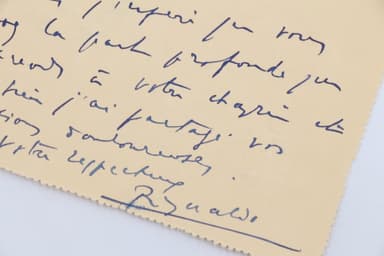 j'espère que vous
la part profonde que
prends à votre chagrin et
bien j'ai partagé vos
douloureuses.
votre respectueux
Reynaldo